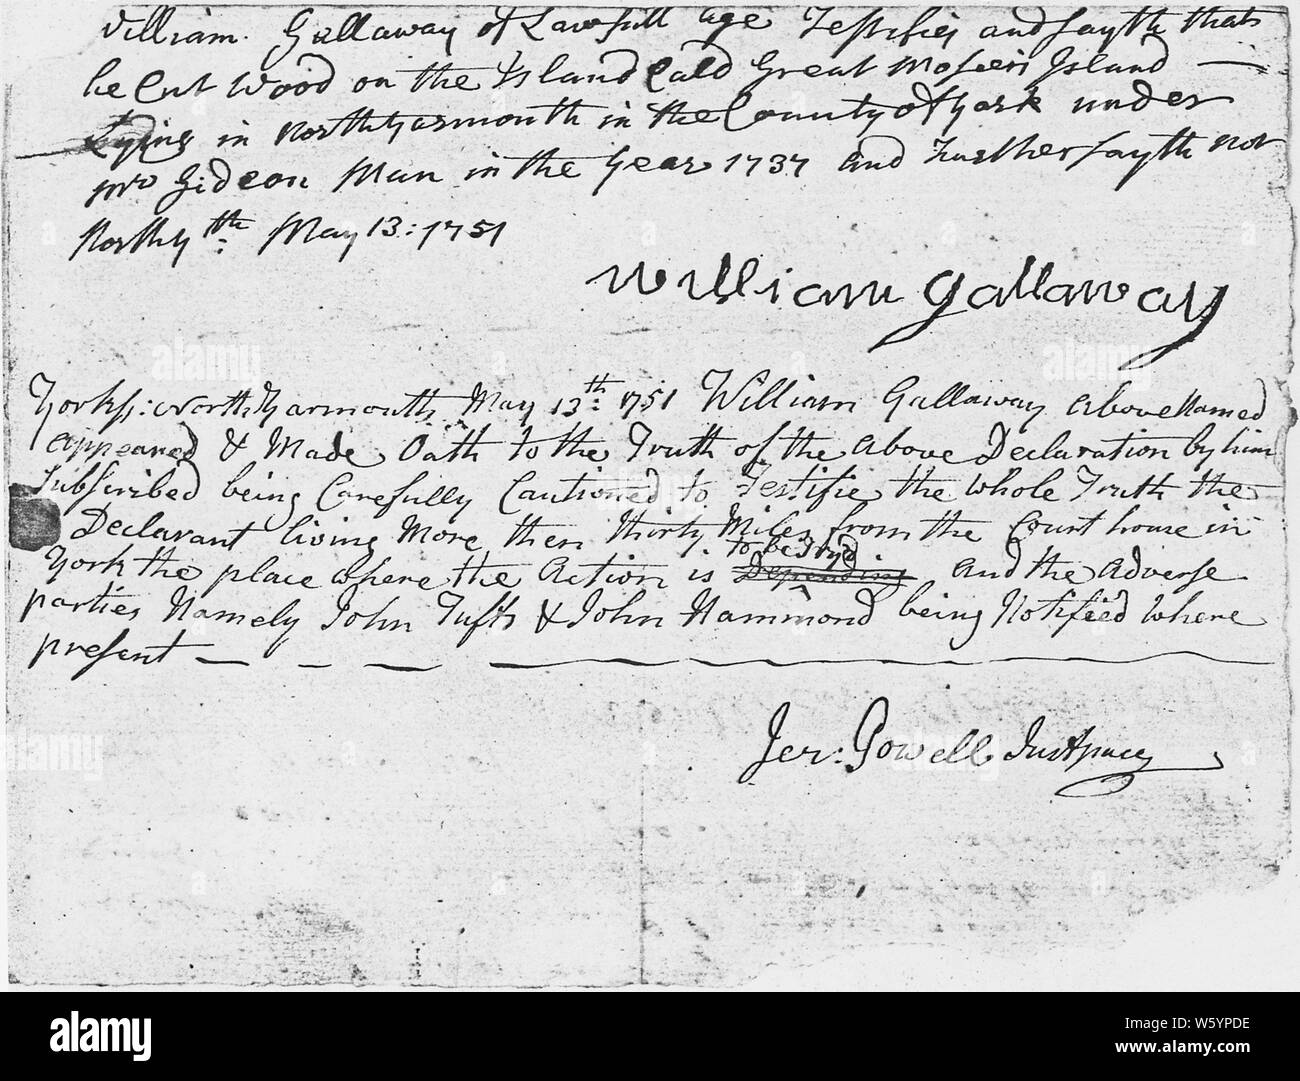 William Gallaway of Lawfull age Testifies and sayth that
he Cut Wood on the Island Cald Great Mosier Island
Lying in North Yarmouth in the County of York under
Mr Gideon Man in the Year 1737 and Further sayth not
North Yth: May 13: 1751
William Gallaway
York ss: North Yarmouth May 13th: 1751 William Gallaway above Named
appeared & Made Oath to the Truth of the above Declaration by him
Subscribed being Carefully Cautioned to Testifie the whole Truth the
Declarant living More then thirty Miles from the Court house in
to be tryd
York the place where the Action is Depending and the adverse
parties Namely John Tufts & John Hammond being Notifeed where
present
Jer: Powell Just pace
alamy
alamy
Image ID: W5YPDE
www.alamy.com